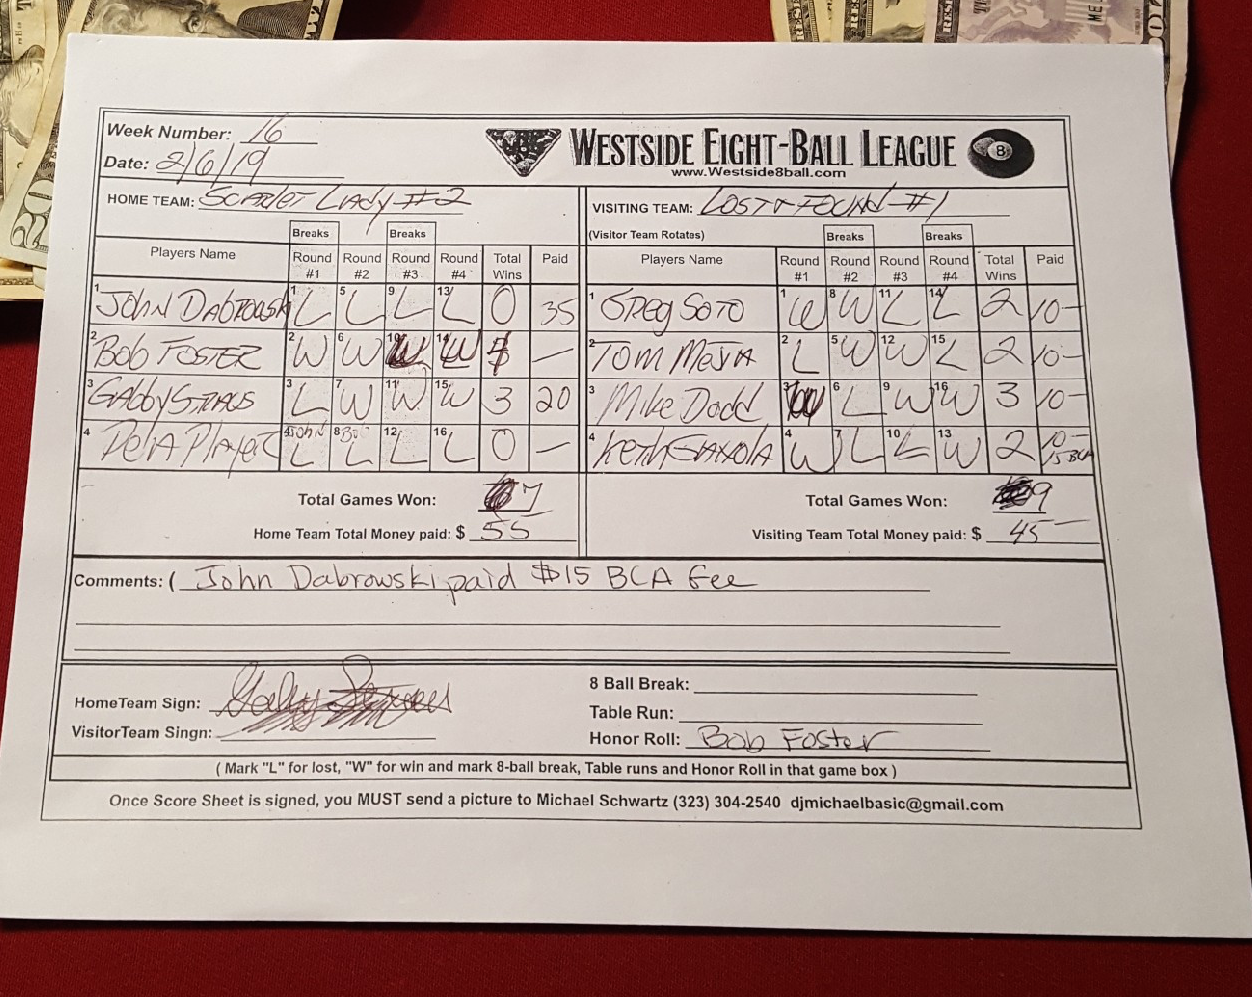 Week Number: 16
Date: 2/6/19
WESTSIDE EIGHT-BALL LEAGUE
8
www.Westside8ball.com
HOME TEAM: Scarlet Lady #2
VISITING TEAM: LOST & FOUND #1
(Visitor Team Rotates)
Breaks Breaks Breaks Breaks
Players Name Round #1 Round #2 Round #3 Round #4 Total Wins Paid
Players Name Round #1 Round #2 Round #3 Round #4 Total Wins Paid
1 JOHN DABROWSKI 1 L 5 L 9 L 13 L 0 35
1 Greg SOTO 1 W 8 W 11 L 14 L 2 10-
2 BOB FOSTER 2 W 6 W 10 W 14 W —
2 TOM MEJIA 2 L 5 W 12 W 15 L 2 10-
3 GAbby 3 L 7 W 11 W 15 W 3 20
3 Mike Dodd 3 W 6 L 9 W 16 W 3 10-
4 Player 4 John L 8 Bob L 12 L 16 L 0 —
4 4 W 7 L 10 L 13 W 2 10- 15 BCA
Total Games Won: 7
Total Games Won: 9
Home Team Total Money paid: $ 55
Visiting Team Total Money paid: $ 45-
Comments: ( John Dabrowski paid $15 BCA fee
HomeTeam Sign:
VisitorTeam Singn:
8 Ball Break:
Table Run:
Honor Roll: Bob Foster
( Mark "L" for lost, "W" for win and mark 8-ball break, Table runs and Honor Roll in that game box )
Once Score Sheet is signed, you MUST send a picture to Michael Schwartz (323) 304-2540 djmichaelbasic@gmail.com